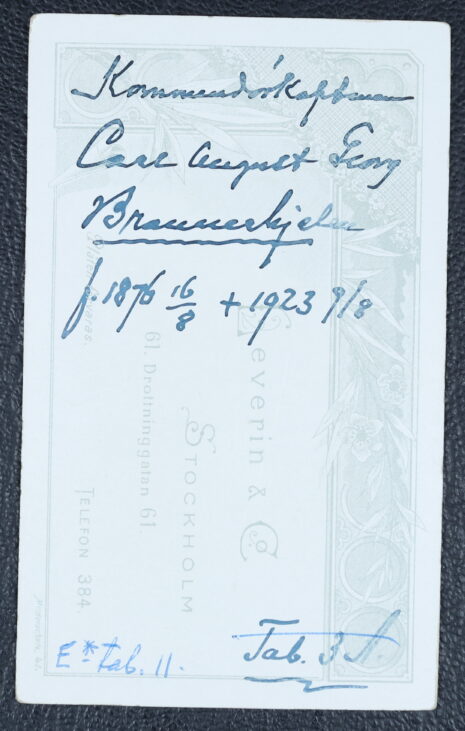 Kommendörkaptenen
Carl August Georg
Braunerhjelm
f. 1876 16/8 + 1923 9/8
Severin & Co
STOCKHOLM
61. Drottninggatan 61.
TELEFON 384.
E* tab. 11.
Tab. 3 A.